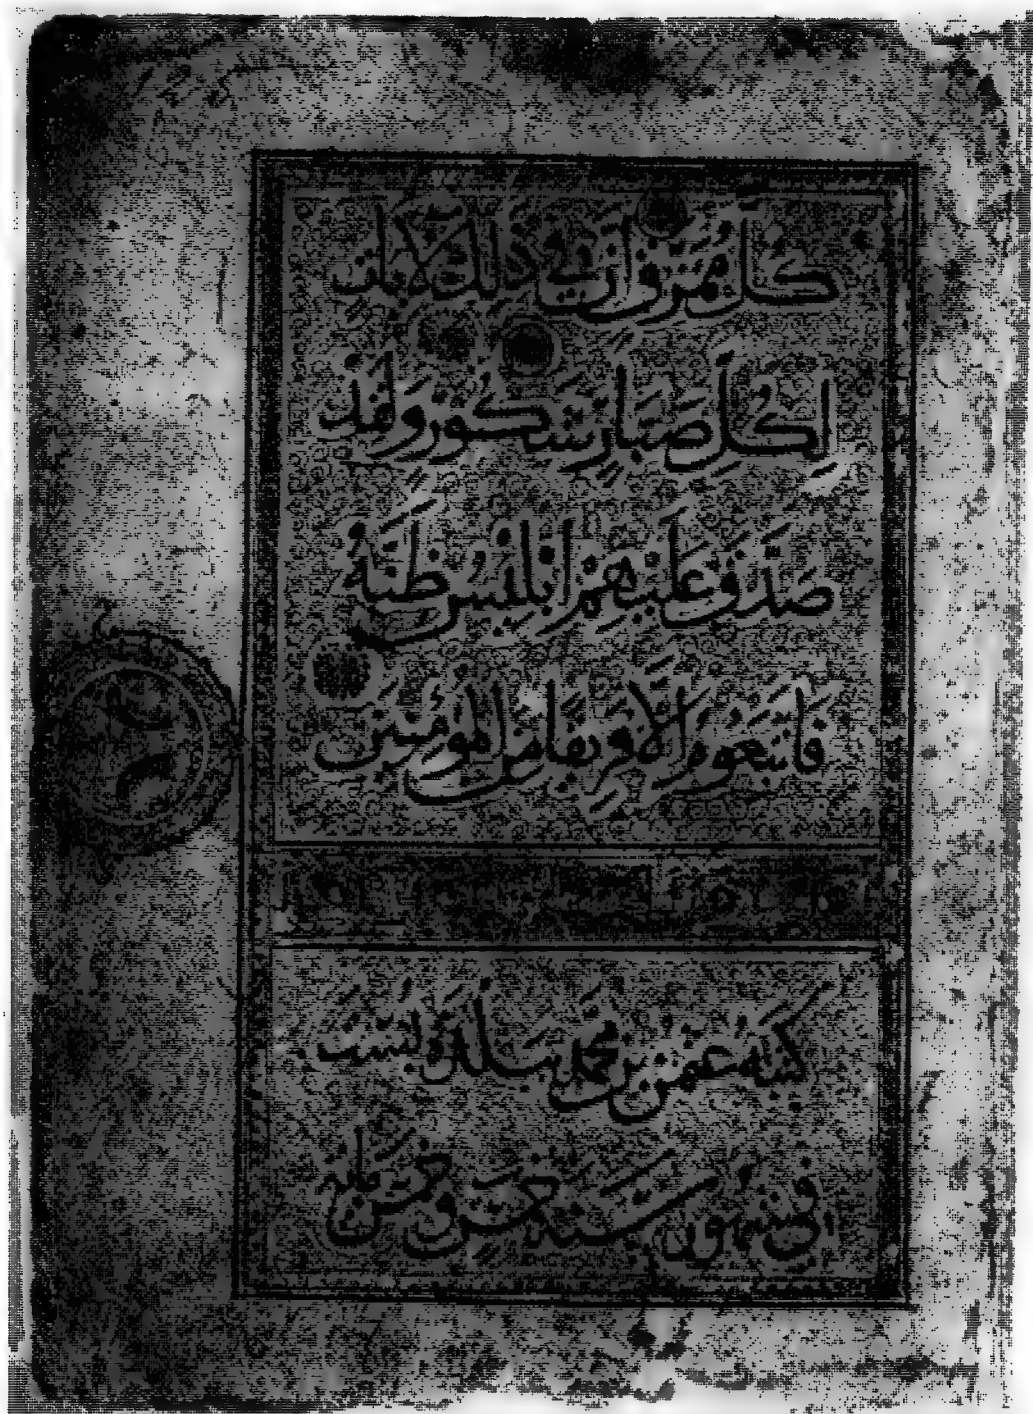 كُلَّ مُمَزَّقٍ إِنَّ فِي ذَلِكَ لَآيَاتٍ
لِكُلِّ صَبَّارٍ شَكُورٍ وَلَقَدْ
صَدَّقَ عَلَيْهِمْ إِبْلِيسُ ظَنَّهُ
فَاتَّبَعُوهُ إِلَّا فَرِيقًا مِنَ الْمُؤْمِنِينَ
كتبه عثمن بن محمد ببلدة بست
في شهور سنة خمس وخمس مائه